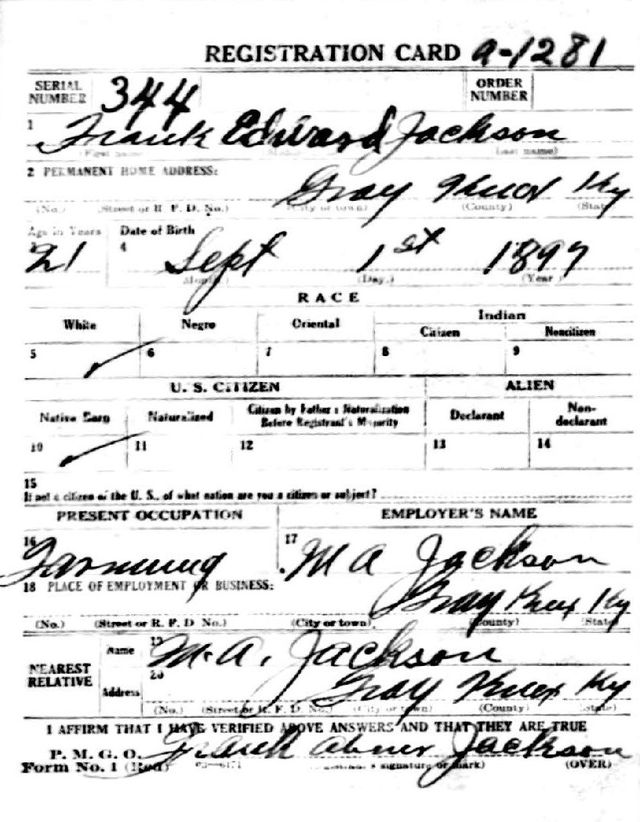 REGISTRATION CARD a-1281
SERIAL NUMBER 344 ORDER NUMBER
1 Frank Edward Jackson
(First name) (Last name)
2 PERMANENT HOME ADDRESS:
Gray Knox Ky
(No.) (Street or R. F. D. No.) (City or town) (County) (State
Age in Years Date of Birth
21 4 Sept 1st 1897
(Month.) (Day.) (Year.)
RACE
White Negro Oriental Indian
Citizen Noncitizen
5 ✓ 6 7 8 9
U. S. CITIZEN ALIEN
Native Born Naturalized Citizen by Father's Naturalization Before Registrant's Majority Declarant Non-declarant
10 ✓ 11 12 13 14
15
If not a citizen of the U. S., of what nation are you a citizen or subject?
PRESENT OCCUPATION EMPLOYER'S NAME
16 Farming 17 M A Jackson
18 PLACE OF EMPLOYMENT OR BUSINESS:
Gray Knox Ky
(No.) (Street or R. F. D. No.) (City or town) (County) (State
NEAREST RELATIVE Name 19 M. A. Jackson
Address 20 Gray Knox Ky
(No.) (Street or R. F. D. No.) (City or town) (County) (State)
I AFFIRM THAT I HAVE VERIFIED ABOVE ANSWERS AND THAT THEY ARE TRUE
P. M. G. O.
Form No. 1 (Red) Frank Abner Jackson
signature or mark) (OVER)